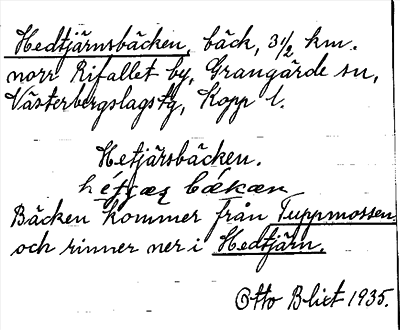 Hedtjärnsbäcken, bäck, 3½ km.
norr Rifallet by, Grangärde sn,
Västerbergslags tg, Kopp l.
Hetjärsbäcken.
bäkæn
Bäcken kommer från Tuppmossen
och rinner ner i Hedtjärn.
Otto Blixt 1935.